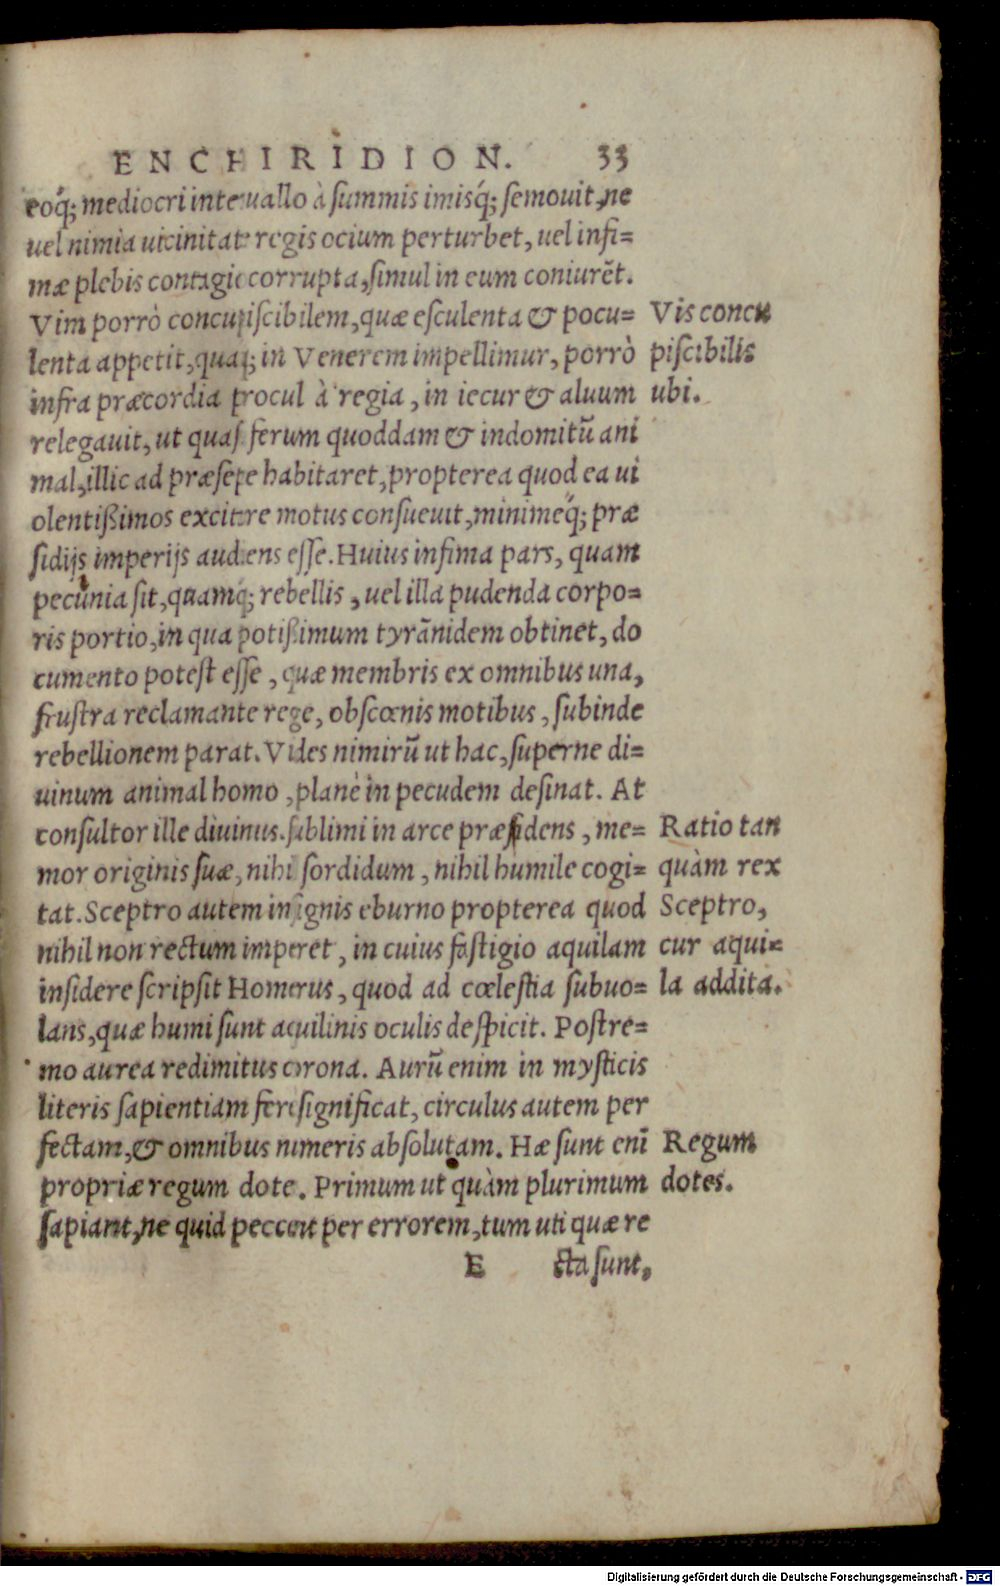 ENCHIRIDION. 33
eoq́; mediocri interuallo à summis imisq́; semouit, ne
uel nimia uicinitate regis ocium perturbet, uel infi=
mæ plebis contagio corrupta, simul in eum coniurēt.
Vim porrò concupiscibilem, quæ esculenta & pocu=
lenta appetit, quaq́; in Venerem impellimur, porrò
infra præcordia procul à regia, in iecur & aluum
relegauit, ut quasi ferum quoddam & indomitū ani
mal, illic ad præsepe habitaret, propterea quod ea ui
olentißimos excitare motus consueuit, minimeq́; præ
sidijs imperijs audiens esse. Huius infima pars, quam
pecunia sit, quamq́; rebellis, uel illa pudenda corpo=
ris portio, in qua potißimum tyrānidem obtinet, do
cumento potest esse, quæ membris ex omnibus una,
frustra reclamante rege, obscœnis motibus, subinde
rebellionem parat. Vides nimirū ut hac, superne di=
uinum animal homo, planè in pecudem desinat. At
consultor ille diuinus. sublimi in arce præsidens, me=
mor originis suæ, nihil sordidum, nihil humile cogi=
tat. Sceptro autem insignis eburno propterea quod
nihil non rectum imperet, in cuius fastigio aquilam
insidere scripsit Homerus, quod ad cœlestia subuo=
lans, quæ humi sunt aquilinis oculis despicit. Postre=
mo aurea redimitus corona. Aurū enim in mysticis
literis sapientiam fere significat, circulus autem per
fectam, & omnibus numeris absolutam. Hæ sunt enī
propriæ regum dote. Primum ut quàm plurimum
sapiant, ne quid peccent per errorem, tum uti quæ re
E cta sunt,
Vis concu
piscibilis
ubi.
Ratio tan
quàm rex
Sceptro,
cur aqui=
la addita.
Regum
dotes.
Digitalisierung gefördert durch die Deutsche Forschungsgemeinschaft - DFG